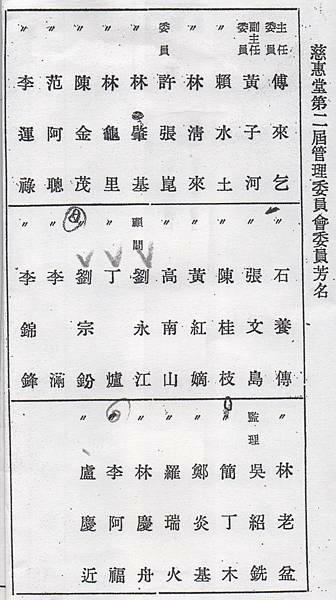 慈惠堂第二屆管理委員會委員芳名
主任委員 傅來乞
副主任委員 黃子河
〃 賴水土
〃 林清來
委員 許張崑
〃 林肇基
〃 林龜里
〃 陳金茂
〃 范阿聰
〃 李運祿
〃 石養傳
〃 張文島
〃 陳桂枝
〃 黃紅嫡
〃 高南山
顧問 劉永江
〃 丁爐
〃 劉宗鈖
〃 李滿
〃 李錦鋒
〃 林老盆
監理 吳紹銑
〃 簡丁木
〃 鄭炎基
〃 羅瑞火
〃 林慶舟
〃 李阿福
〃 盧慶近